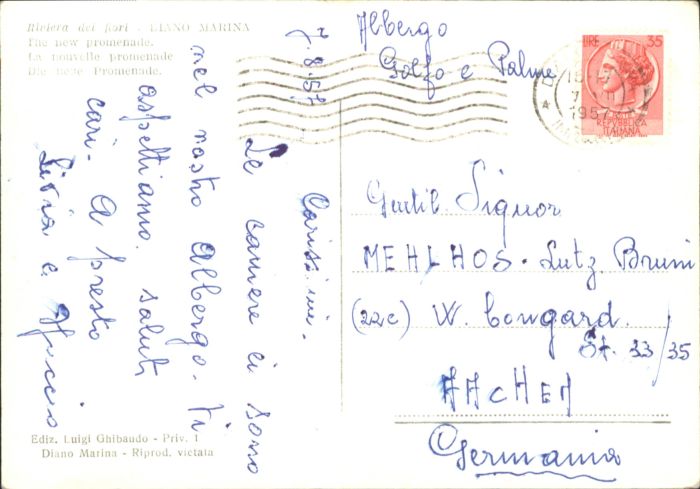 Riviera dei fiori - DIANO MARINA
The new promenade.
La nouvelle promenade
Die neue Promenade.
7.8.57
Carissimi.
Le camere ci sono
nel nostro albergo. Vi
aspettiamo. saluti
cari. A presto
Livia e
Albergo
Golfo e Palme
LIRE 35
1957
REPVBBLICA
ITALIANA
Gentil Signor
MEHLHOS. Lutz. Bruni
(22c) W. Congard.
St. 33/35
AACHEN
Germania
Ediz. Luigi Ghibaudo - Priv. 1
Diano Marina - Riprod. vietata